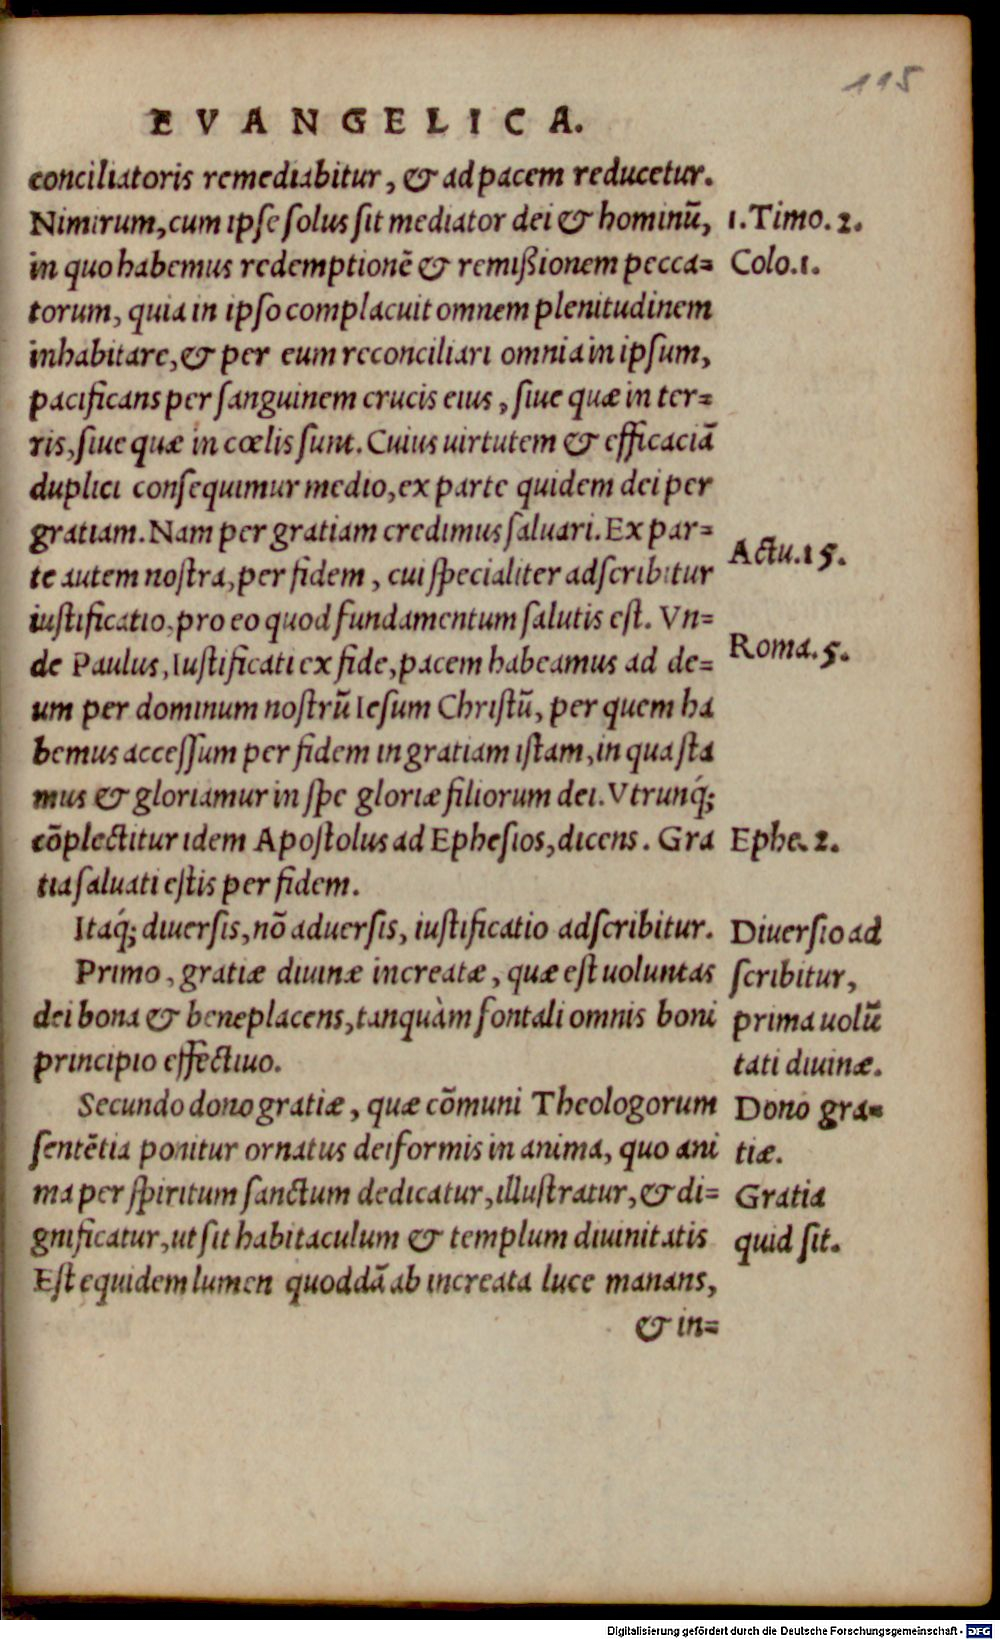 115
EVANGELICA.
conciliatoris remediabitur, & ad pacem reducetur.
Nimirum, cum ipse solus sit mediator dei & hominū,
1. Timo. 2.
in quo habemus redemptionē & remißionem pecca=
Colo. 1.
torum, quia in ipso complacuit omnem plenitudinem
inhabitare, & per eum reconciliari omnia in ipsum,
pacificans per sanguinem crucis eius, siue quæ in ter=
ris, siue quæ in cœlis sunt. Cuius uirtutem & efficaciā
duplici consequimur medio, ex parte quidem dei per
gratiam. Nam per gratiam credimus saluari. Ex par=
Actu. 15.
te autem nostra, per fidem, cui specialiter adscribitur
iustificatio, pro eo quod fundamentum salutis est. Vn=
de Paulus, Iustificati ex fide, pacem habeamus ad de=
Roma. 5.
um per dominum nostrū Iesum Christū, per quem ha
bemus accessum per fidem in gratiam istam, in qua sta
mus & gloriamur in spe gloriæ filiorum dei. Vtrunq́;
cōplectitur idem Apostolus ad Ephesios, dicens. Gra
Ephe. 2.
tia saluati estis per fidem.
Itaq́; diuersis, nō aduersis, iustificatio adscribitur.
Diuersio ad
Primo, gratiæ diuinæ increatæ, quæ est uoluntas
scribitur,
dei bona & beneplacens, tanquàm fontali omnis boni
prima uolū
principio effectiuo.
tati diuinæ.
Secundo dono gratiæ, quæ cōmuni Theologorum
Dono gra=
sentētia ponitur ornatus deiformis in anima, quo ani
tiæ.
ma per spiritum sanctum dedicatur, illustratur, & di=
Gratia
gnificatur, ut sit habitaculum & templum diuinitatis
quid sit.
Est equidem lumen quoddā ab increata luce manans,
& in=
Digitalisierung gefördert durch die Deutsche Forschungsgemeinschaft - DFG